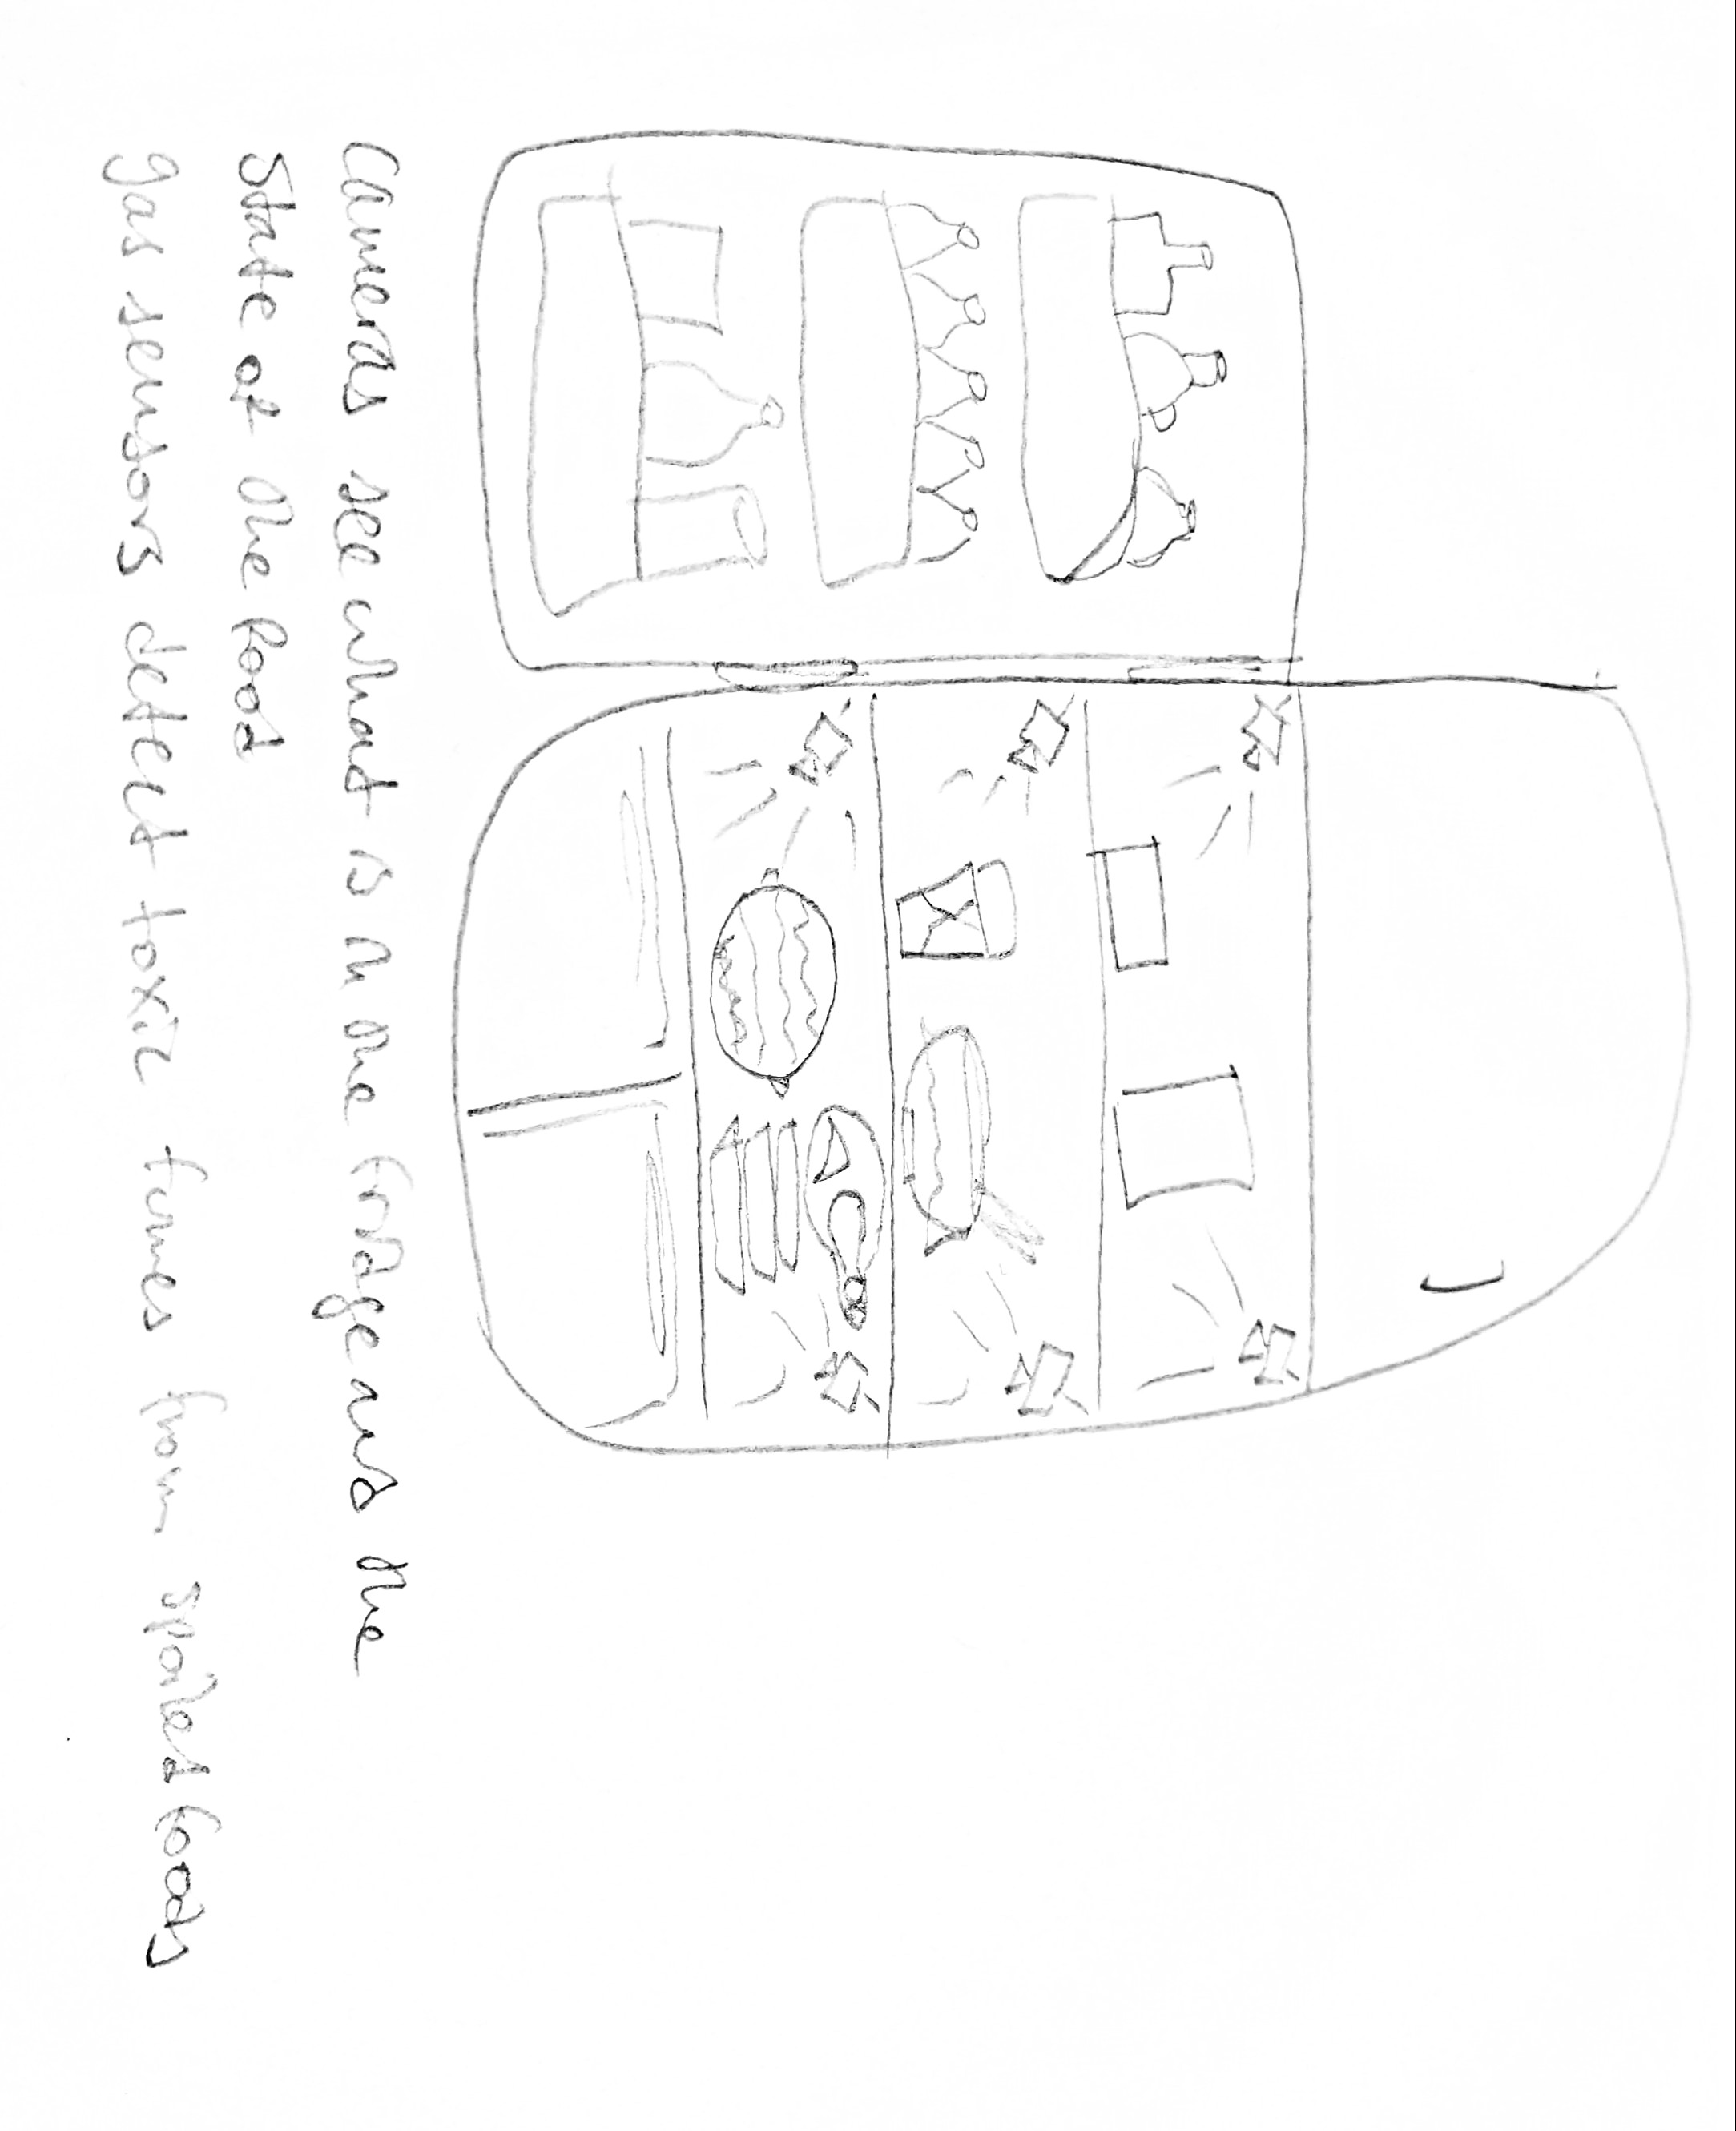 Cameras see what is in the fridge and the
State of the food
gas sensors detect toxic fumes from spoiled foods